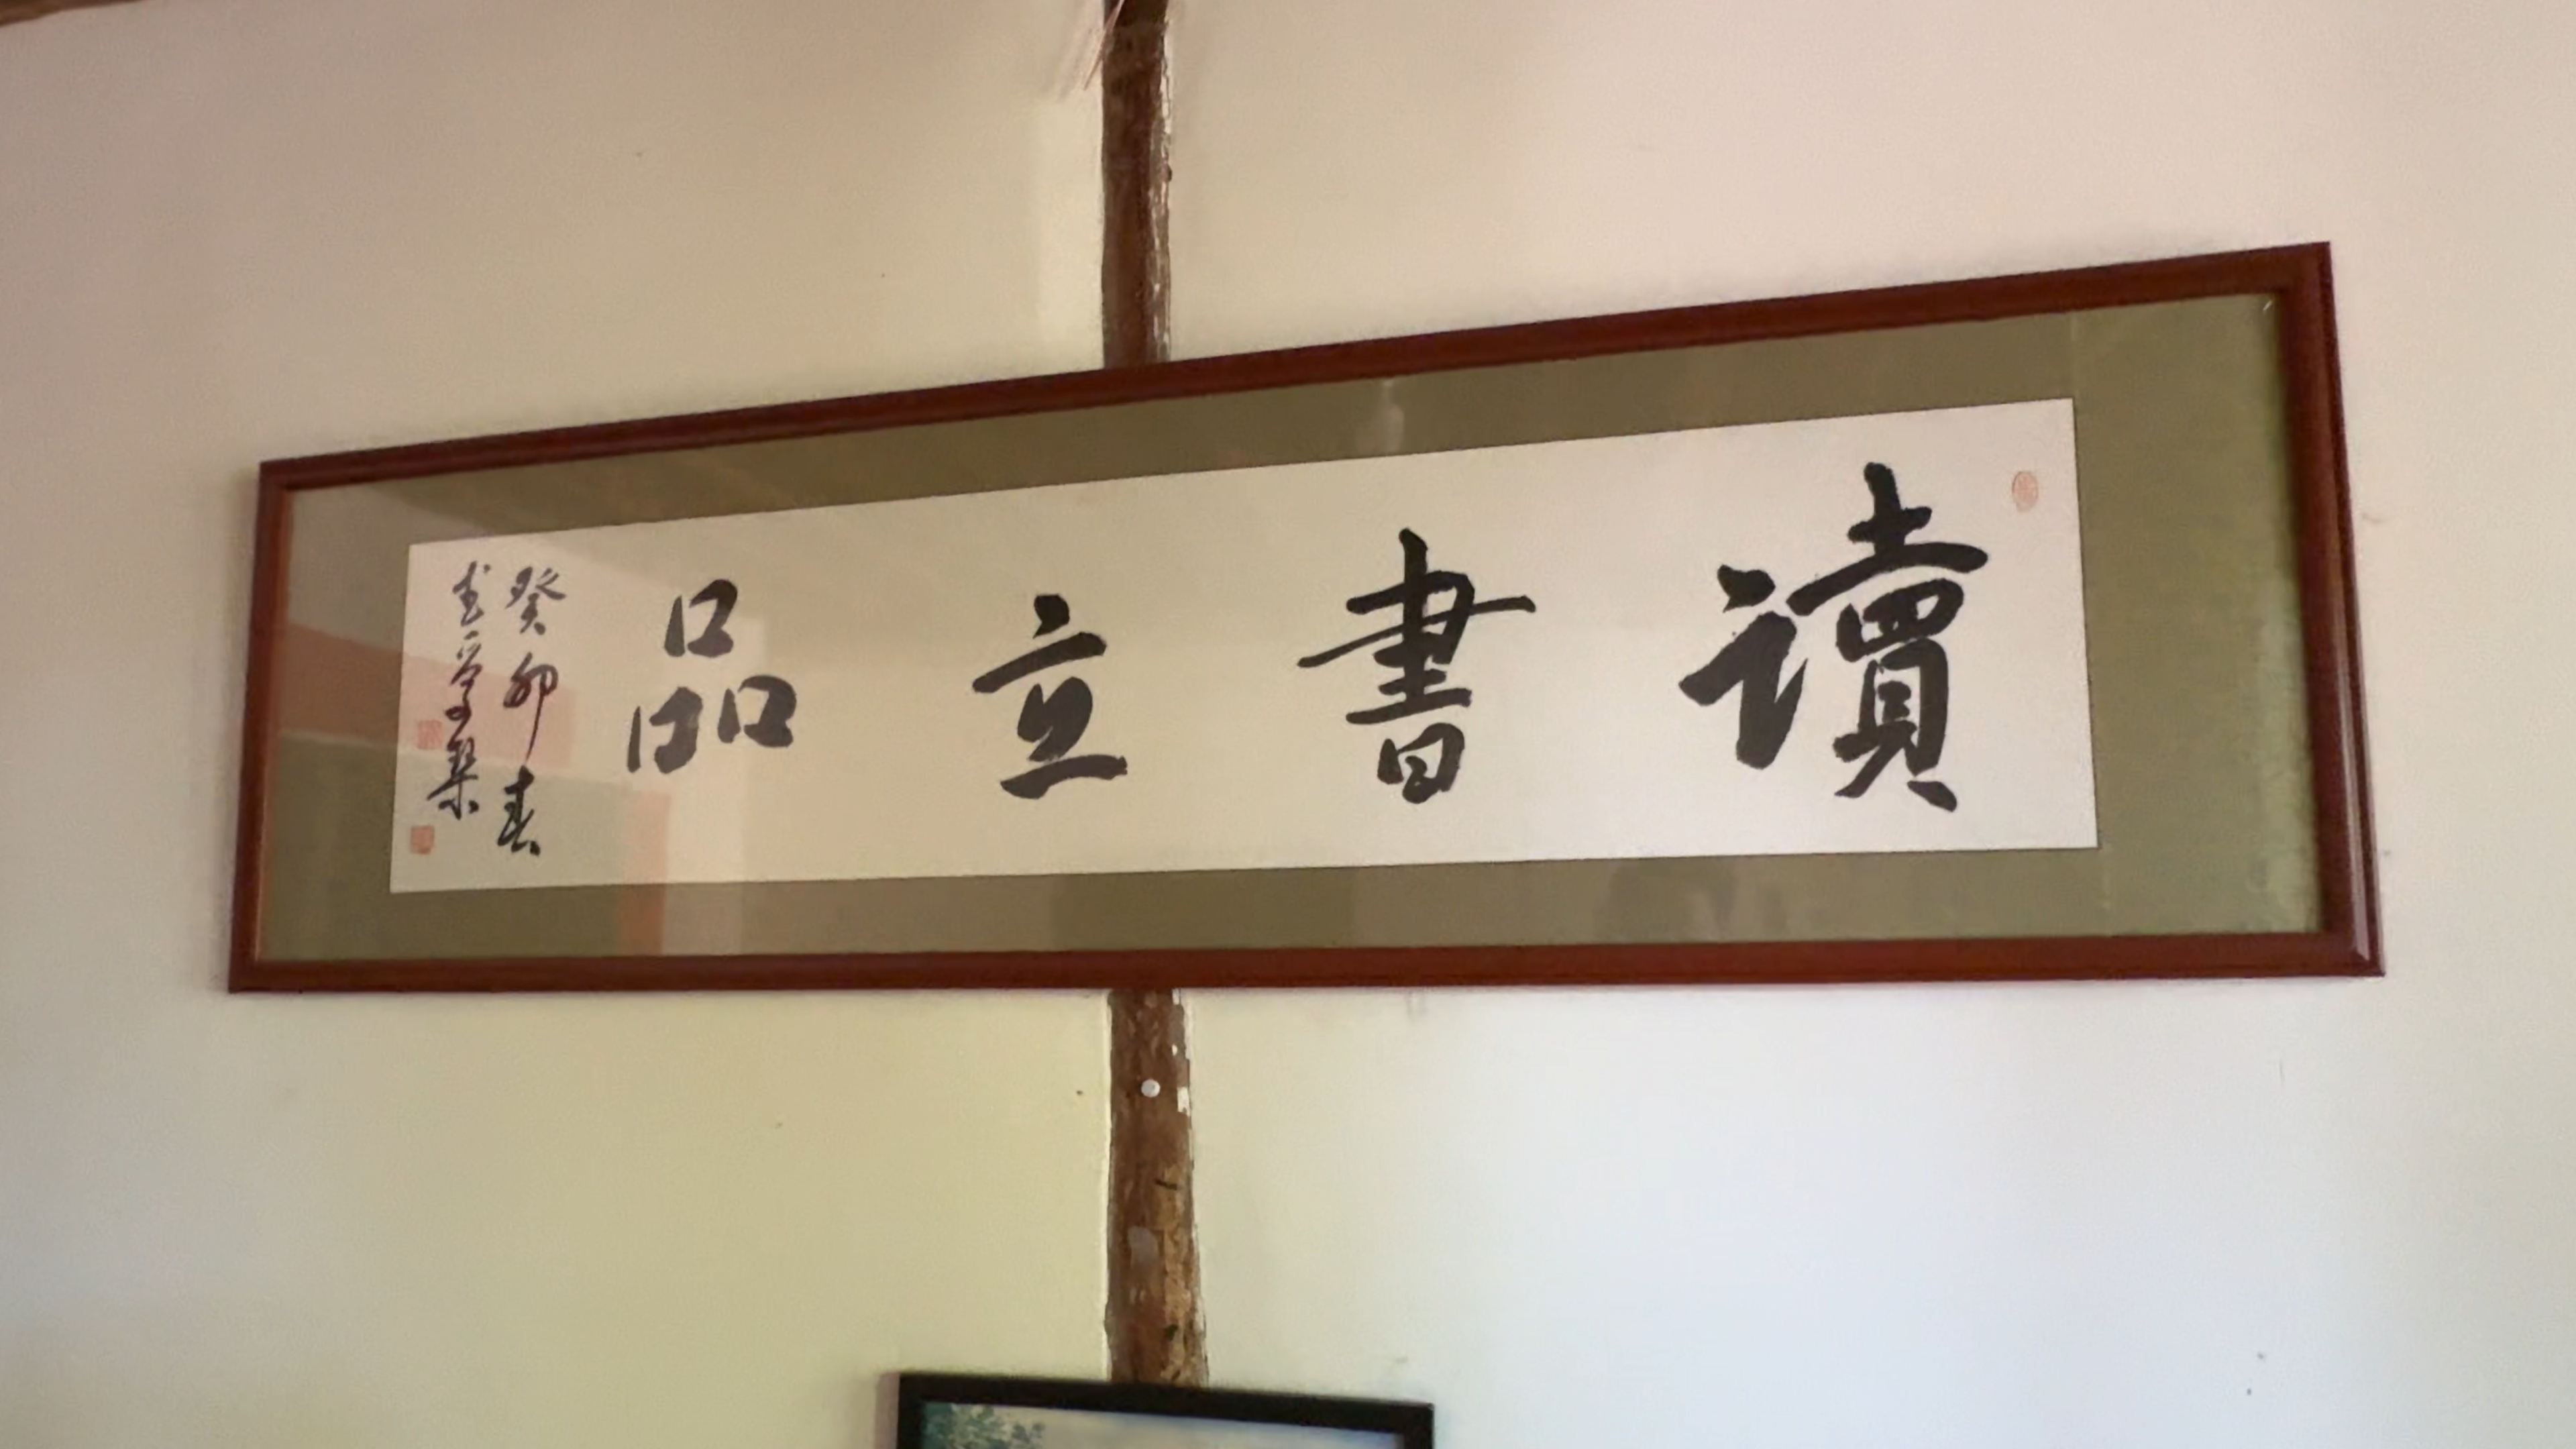 讀書立品
癸卯春